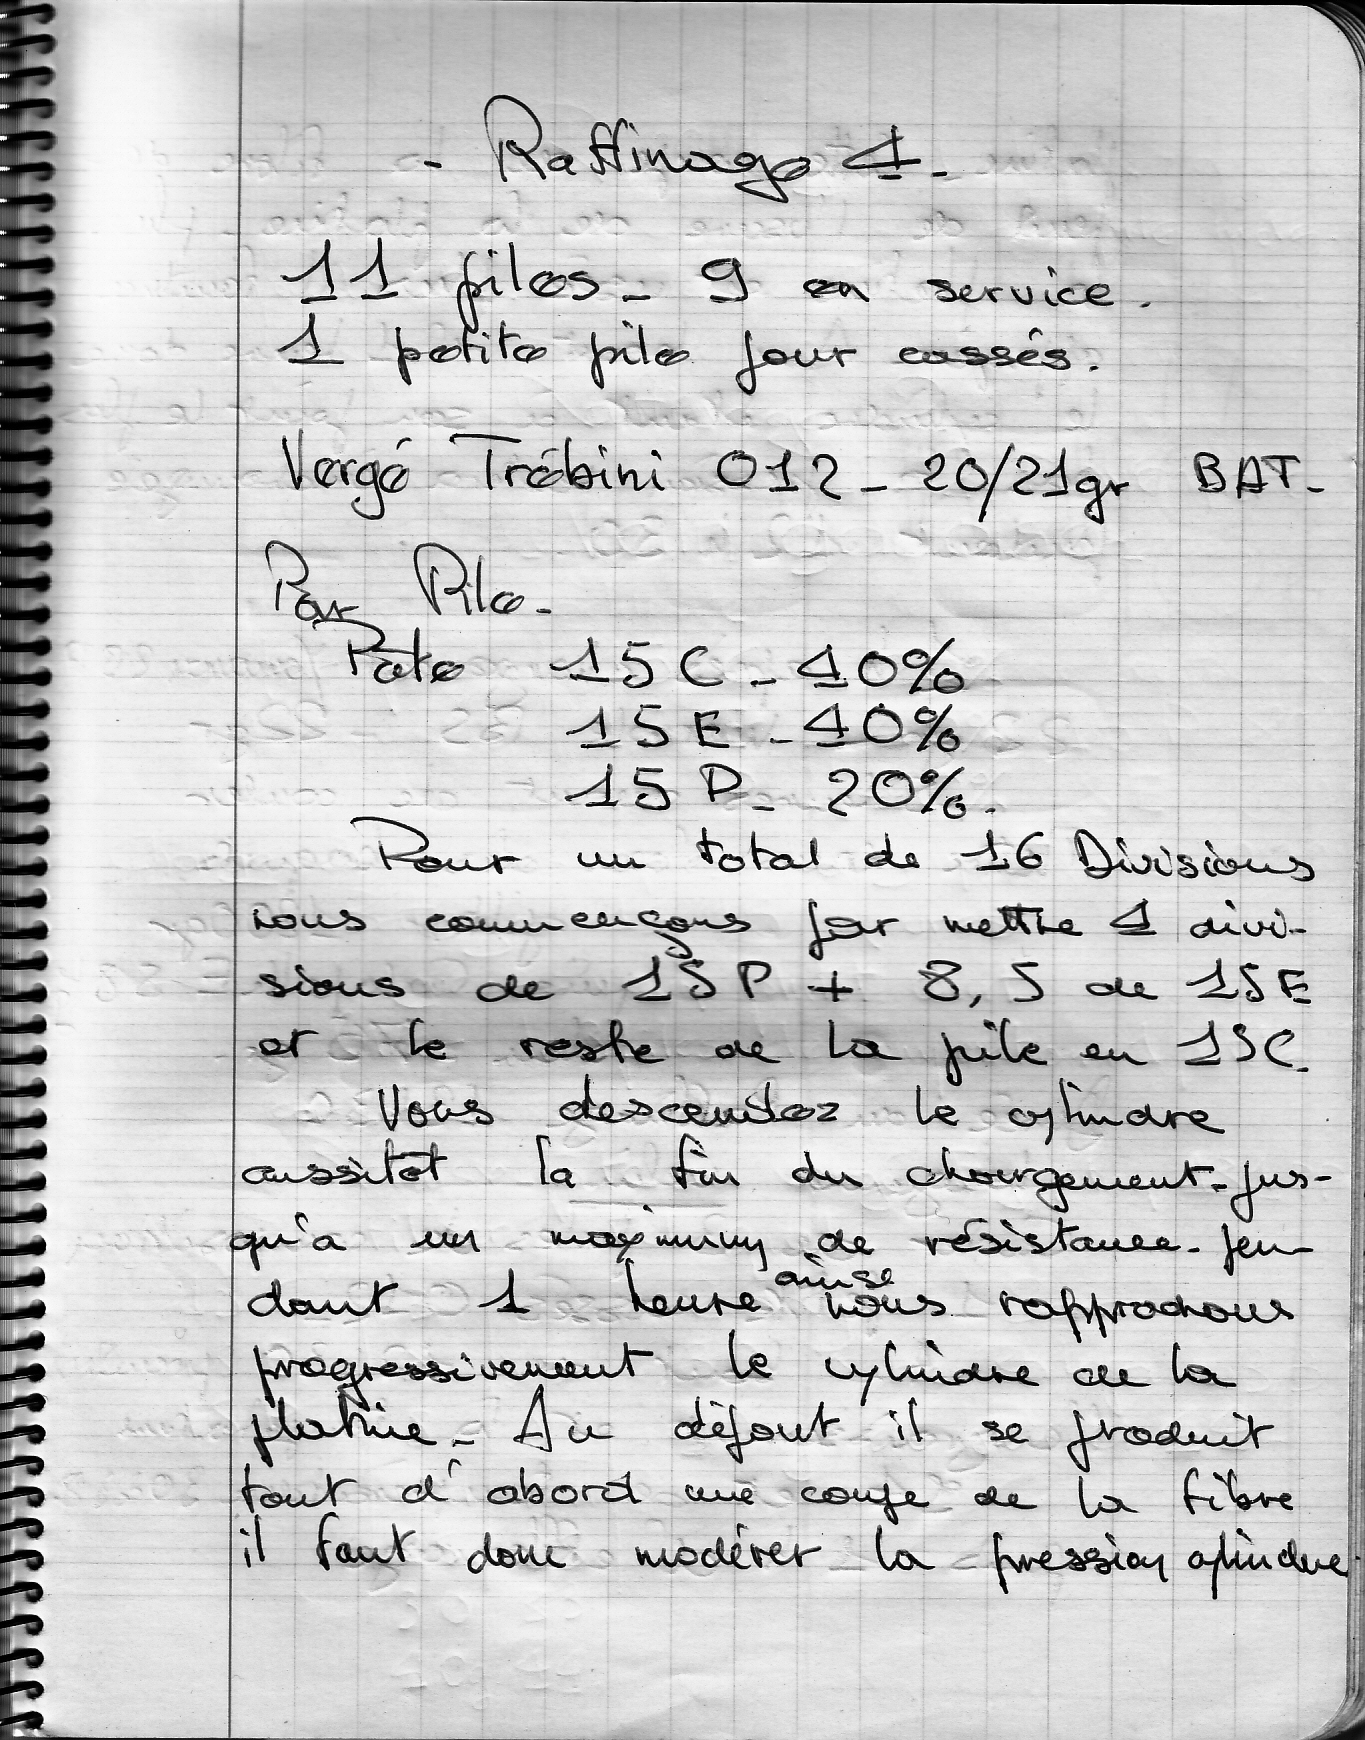 - Raffinage 4 -
11 piles - 9 en service.
1 petite pile pour cassés.
Vergé Trébini 012 - 20/21gr BAT -
Par Pile -
Pate 15 C - 40%
15 E - 40%
15 P - 20%.
Pour un total de 16 Divisions
nous commençons par mettre 4 divi-
sions de 15 P + 8,5 de 15 E
et le reste de la pile en 15C.
Vous descendez le cylindre
aussitôt la fin du chargement - jus-
qu'a un maximum de résistance - pen-
dant 1 heure ainse nous rapprochons
progressivement le cylindre de la
platine - Au défaut il se produit
tout d'abord une coupe de la fibre
il faut donc modérer la pression cylindre